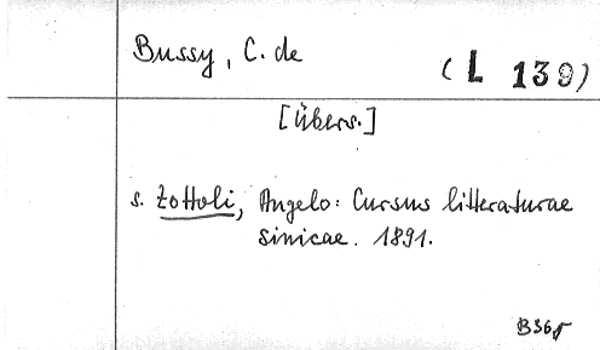 Bussy, C. de
(L 139)
[Übers.]
s. Zottoli, Angelo: Cursus litteraturae
sinicae. 1891.